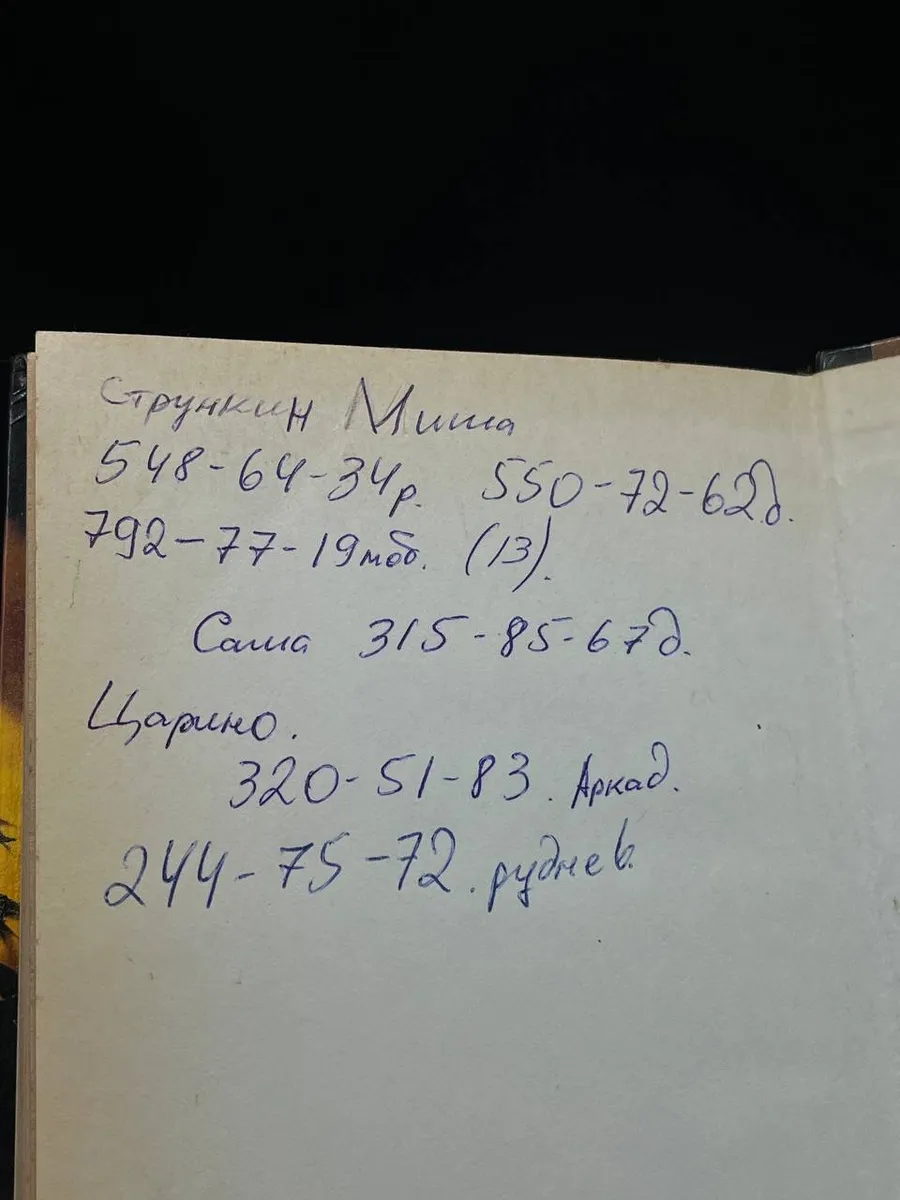 Стрункин Миша
548-64-34р. 550-72-62д.
792-77-19моб. (13).
Саша 315-85-67д.
Царино.
320-51-83. Аркад.
244-75-72. руднев.